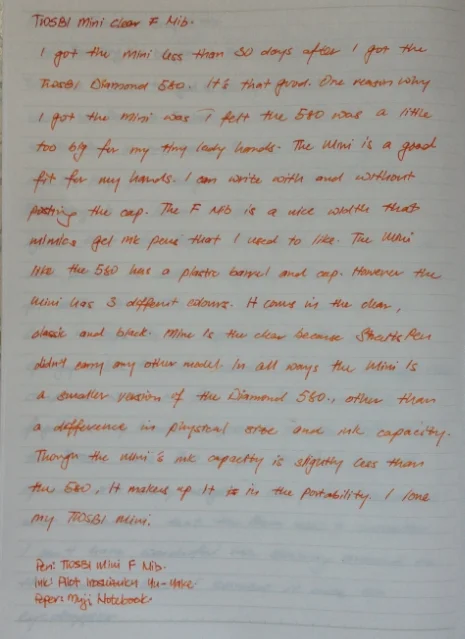 TWSBI Mini Clear F Nib.
I got the Mini less than 30 days after I got the
TWSBI Diamond 580. It's that good. One reason why
I got the Mini was I felt the 580 was a little
too big for my tiny lady hands. The Mini is a good
fit for my hands. I can write with and without
posting the cap. The F Nib is a nice width that
mimics gel ink pens that I used to like. The Mini
like the 580 has a plastic barrel and cap. However the
Mini has 3 different colours. It comes in the clear,
classic and black. Mine is the clear because StraitsPen
didn't carry any other model. In all ways the Mini is
a smaller version of the Diamond 580., other than
a difference in physical size and ink capacity.
Though the Mini's ink capacity is slightly less than
the 580, it makes up it is in the portability. I love
my TWSBI Mini.
Pen: TWSBI Mini F Nib.
Ink: Pilot Iroshizuku Yu-Yake
Paper: Muji Notebook.